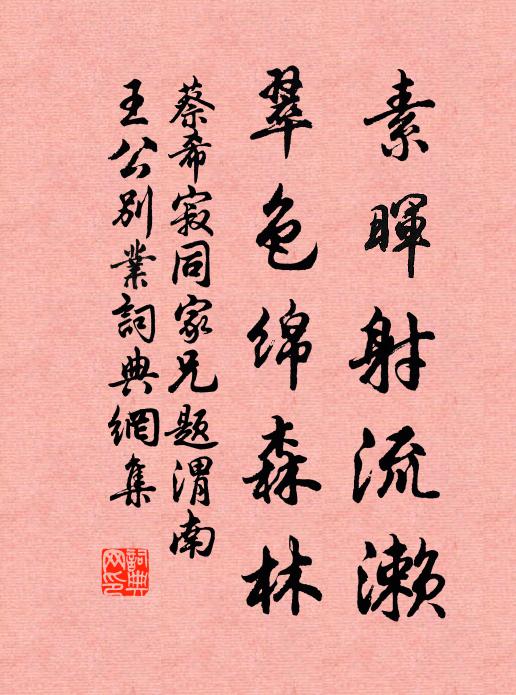 素暉射流瀨
翠色綿森林
蔡希寂同家兄题渭南
王公別業詞典網集
詞典网印